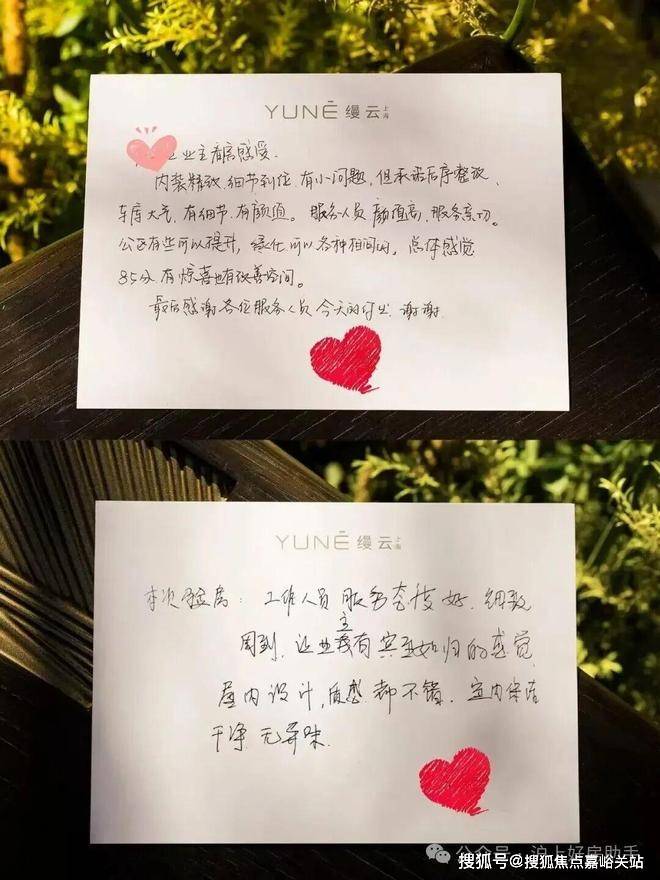 YUNĒ 缦云 上海
业主看房感受.
内装精致.细节到位.有小问题,但承诺后序整改.
车库大气.有细节.有颜值。服务人员颜值高,服务亲切。
公区有些可以提升,绿化可以各种相间,总体感觉
85分.有惊喜也有改善空间。
最后感谢各位服务人员今天的付出.谢谢.
YUNĒ 缦云 上海
本次验房:工作人员服务态度好.细致
周到.让业主有宾至如归的感觉
屋内设计,质感都不错.室内保洁
干净.无异味.
公众号·沪上好房助手
搜狐号@搜狐焦点嘉峪关站